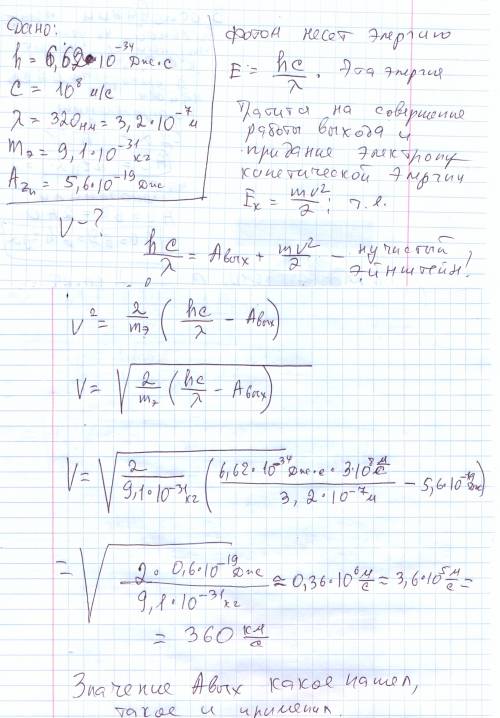 Дано:
h = 6,62•10⁻³⁴ Дж•с
c = 10⁸ м/с
λ = 320нм = 3,2•10⁻⁷м
mэ = 9,1•10⁻³¹ кг
A_Zn = 5,6•10⁻¹⁹ Дж
V-?
Фотон несет энергию
E = hc/λ. Эта энергия
тратится на совершение
работы выхода и
придание электрону
кинетической энергии
Eк = mv²/2; т.е.
hc/λ = Aвых + mv²/2 – нучистый Эйнштейн!
V² = 2/mэ (hc/λ - Aвых)
V = √(2/mэ (hc/λ - Aвых))
V = √(2/9,1•10⁻³¹кг (6,62•10⁻³⁴Дж•с•3•10⁸ м/с / 3,2•10⁻⁷м - 5,6•10⁻¹⁹Дж))
= √(2•0,6•10⁻¹⁹Дж / 9,1•10⁻³¹кг) ≈ 0,36•10⁶ м/с = 3,6•10⁵ м/с =
= 360 км/с
Значение Aвых какое нашел,
такое и применил.